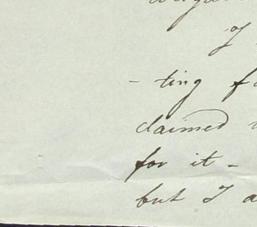 I
- ting f
claimed
for it -
but I a